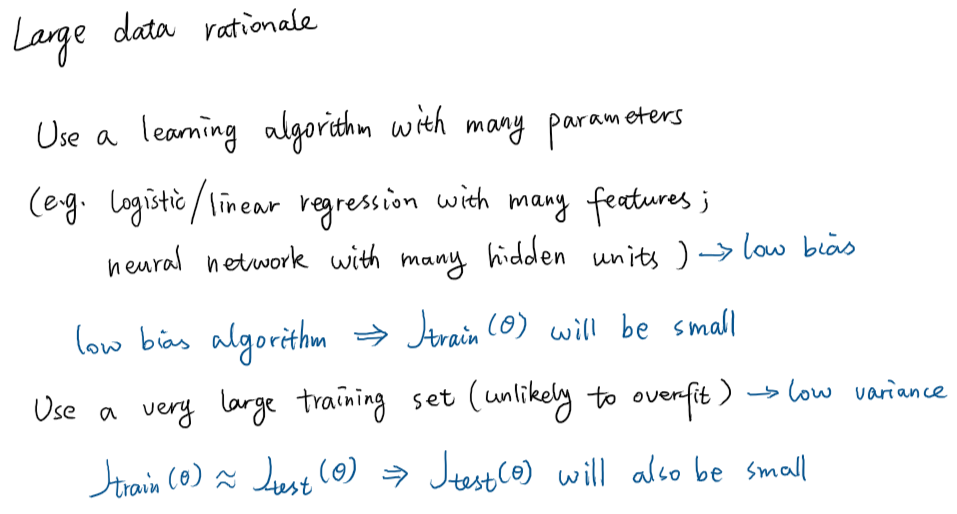 Large data rationale
Use a learning algorithm with many parameters
(e.g. logistic/linear regression with many features;
neural network with many hidden units) → low bias
low bias algorithm ⇒ Jtrain(θ) will be small
Use a very large training set (unlikely to overfit) → low variance
Jtrain(θ) ≈ Jtest(θ) ⇒ Jtest(θ) will also be small